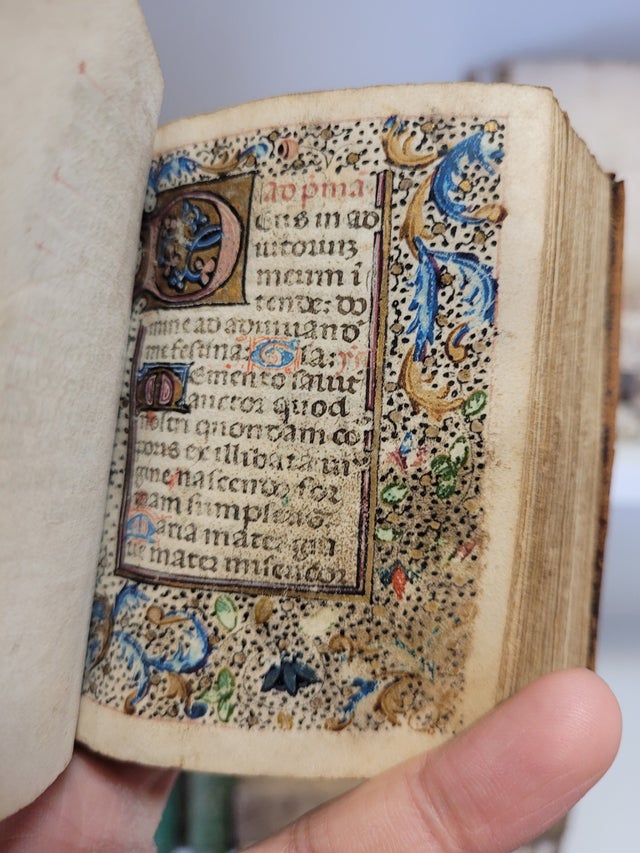 ad p̄ma
Deus in ad
iutoriuʒ
meum i
tende: do
mine ad adiuuand
me festina: Gl̄ia:
Memento salut
auctor quod
nostri quondam cor
poris ex illibata uir
gine nascendo for
mam sumpseris.
Maria mater gra
tie mater misericor